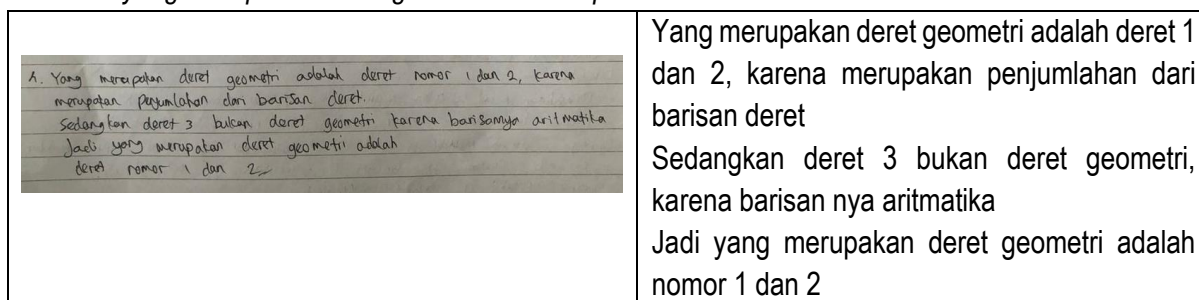 4. Yang merupakan deret geometri adalah deret nomor 1 dan 2, karena
merupakan penjumlahan dari barisan deret.
Sedangkan deret 3 bukan deret geometri karena barisannya aritmatika
Jadi yang merupakan deret geometri adalah
deret nomor 1 dan 2
Yang merupakan deret geometri adalah deret 1
dan 2, karena merupakan penjumlahan dari
barisan deret
Sedangkan deret 3 bukan deret geometri,
karena barisan nya aritmatika
Jadi yang merupakan deret geometri adalah
nomor 1 dan 2